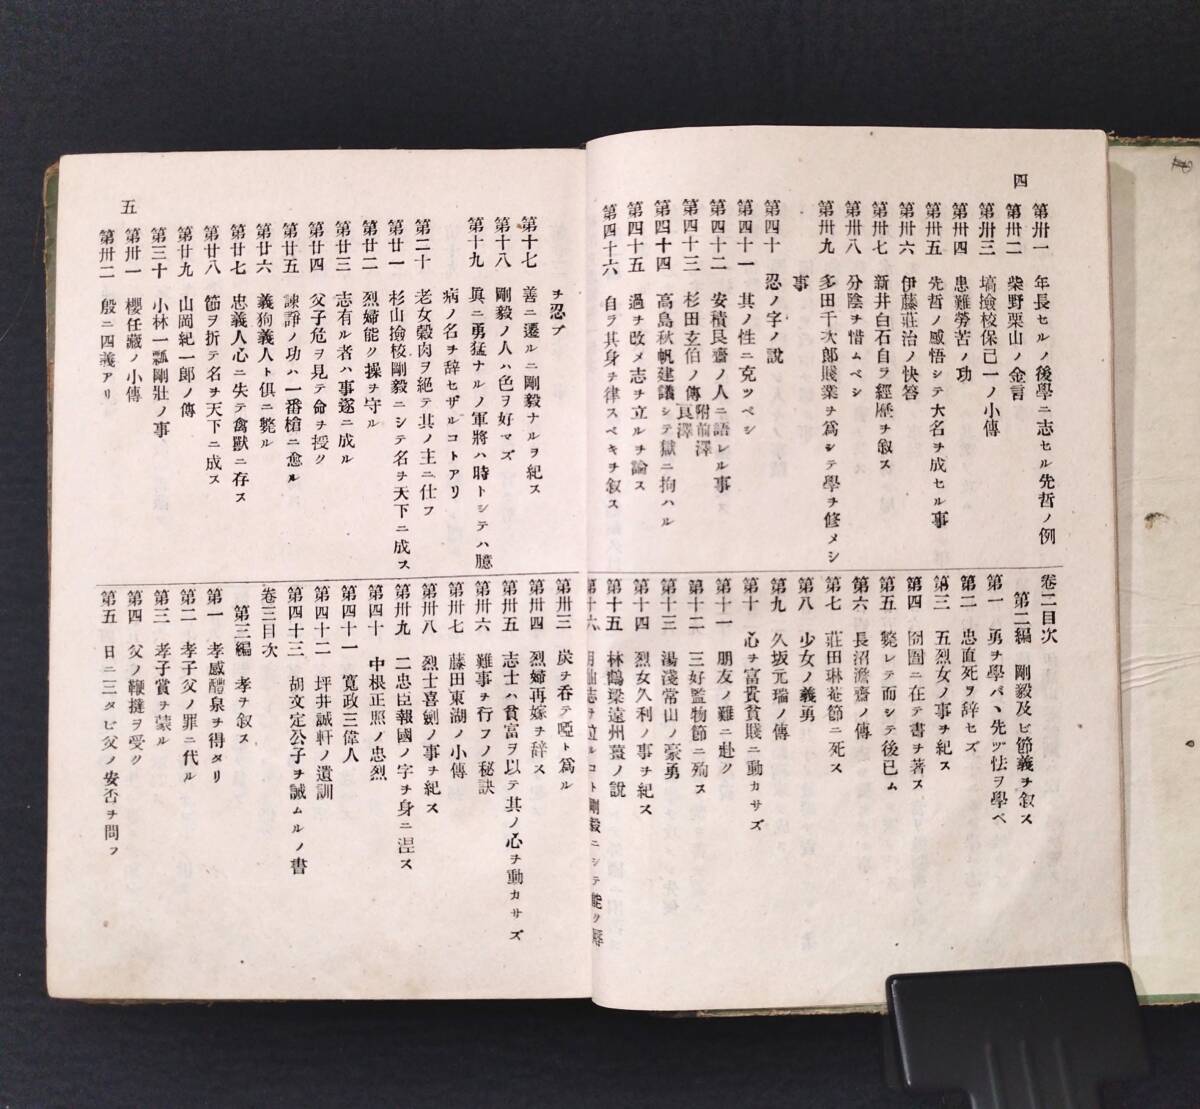 四
第卅一 年長セルノ後學ニ志セル先哲ノ例
第卅二 柴野栗山ノ金言
第卅三 塙撿校保己一ノ小傳
第卅四 患難勞苦ノ功
第卅五 先哲ノ感悟シテ大名ヲ成セル事
第卅六 伊藤莊治ノ快答
第卅七 新井白石自ラ經歴ヲ叙ス
第卅八 分陰ヲ惜ムベシ
第卅九 多田千次郎賤業ヲ爲シテ學ヲ修メシ
事
第四十 忍ノ字ノ說
第四十一 其ノ性ニ克ツベシ
第四十二 安積艮齋ノ人ニ語レル事
第四十三 杉田玄伯ノ傳 附前澤良澤
第四十四 高島秋帆建議シテ獄ニ拘ハル
第四十五 過ヲ改メ志ヲ立ルヲ論ス
第四十六 自ラ其身ヲ律スベキヲ叙ス
卷二目次
第二編 剛毅及ビ節義ヲ叙ス
第一 勇ヲ學バヽ先ヅ怯ヲ學ベ
第二 忠直死ヲ辞セズ
第三 五烈女ノ事ヲ紀ス
第四 囹圄ニ在テ書ヲ著ス
第五 斃レテ而シテ後已ム
第六 長沼澹齋ノ傳
第七 莊田琳菴節ニ死ス
第八 少女ノ義勇
第九 久坂元瑞ノ傳
第十 心ヲ富貴貧賤ニ動カサズ
第十一 朋友ノ難ニ赴ク
第十二 三好監物節ニ殉ス
第十三 湯淺常山ノ豪勇
第十四 烈女久利ノ事ヲ紀ス
第十五 林鶴梁遠州薑ノ說
第十六 志ヲ立ルコト剛毅ニシテ能ク辱
五
ヲ忍ブ
第十七 善ニ遷ルニ剛毅ナルヲ紀ス
第十八 剛毅ノ人ハ色ヲ好マズ
第十九 眞ニ勇猛ナルノ軍將ハ時トシテハ臆
病ノ名ヲ辞セザルコトアリ
第二十 老女穀肉ヲ絕テ其ノ主ニ仕フ
第廿一 杉山撿校剛毅ニシテ名ヲ天下ニ成ス
第廿二 烈婦能ク操ヲ守ル
第廿三 志有ル者ハ事遂ニ成ル
第廿四 父子危ヲ見テ命ヲ授ク
第廿五 諫諍ノ功ハ一番槍ニ愈ル
第廿六 義狗義人ト倶ニ斃ル
第廿七 忠義人心ニ失テ禽獸ニ存ス
第廿八 節ヲ折テ名ヲ天下ニ成ス
第廿九 山岡紀一郎ノ傳
第三十 小林一瓢剛壯ノ事
第卅一 櫻任藏ノ小傳
第卅二 殷ニ四義アリ
第卅三 炭ヲ吞テ啞ト爲ル
第卅四 烈婦再嫁ヲ辞ス
第卅五 志士ハ貧富ヲ以テ其ノ心ヲ動カサズ
第卅六 難事ヲ行フノ秘訣
第卅七 藤田東湖ノ小傳
第卅八 烈士喜劍ノ事ヲ紀ス
第卅九 二忠臣報國ノ字ヲ身ニ涅ス
第四十 中根正照ノ忠烈
第四十一 寛政三偉人
第四十二 坪井誠軒ノ遺訓
第四十三 胡文定公子ヲ誡ムルノ書
卷三目次
第三編 孝ヲ叙ス
第一 孝感醴泉ヲ得タリ
第二 孝子父ノ罪ニ代ル
第三 孝子賞ヲ蒙ル
第四 父ノ鞭撻ヲ受ク
第五 日ニ三タビ父ノ安否ヲ問フ